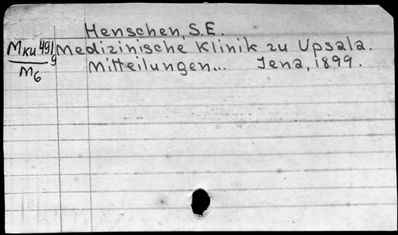 Henschen, S.E.
MKU 491 Medizinische Klinik zu Upsala.
9
M6 Mitteilungen... Jena, 1899.